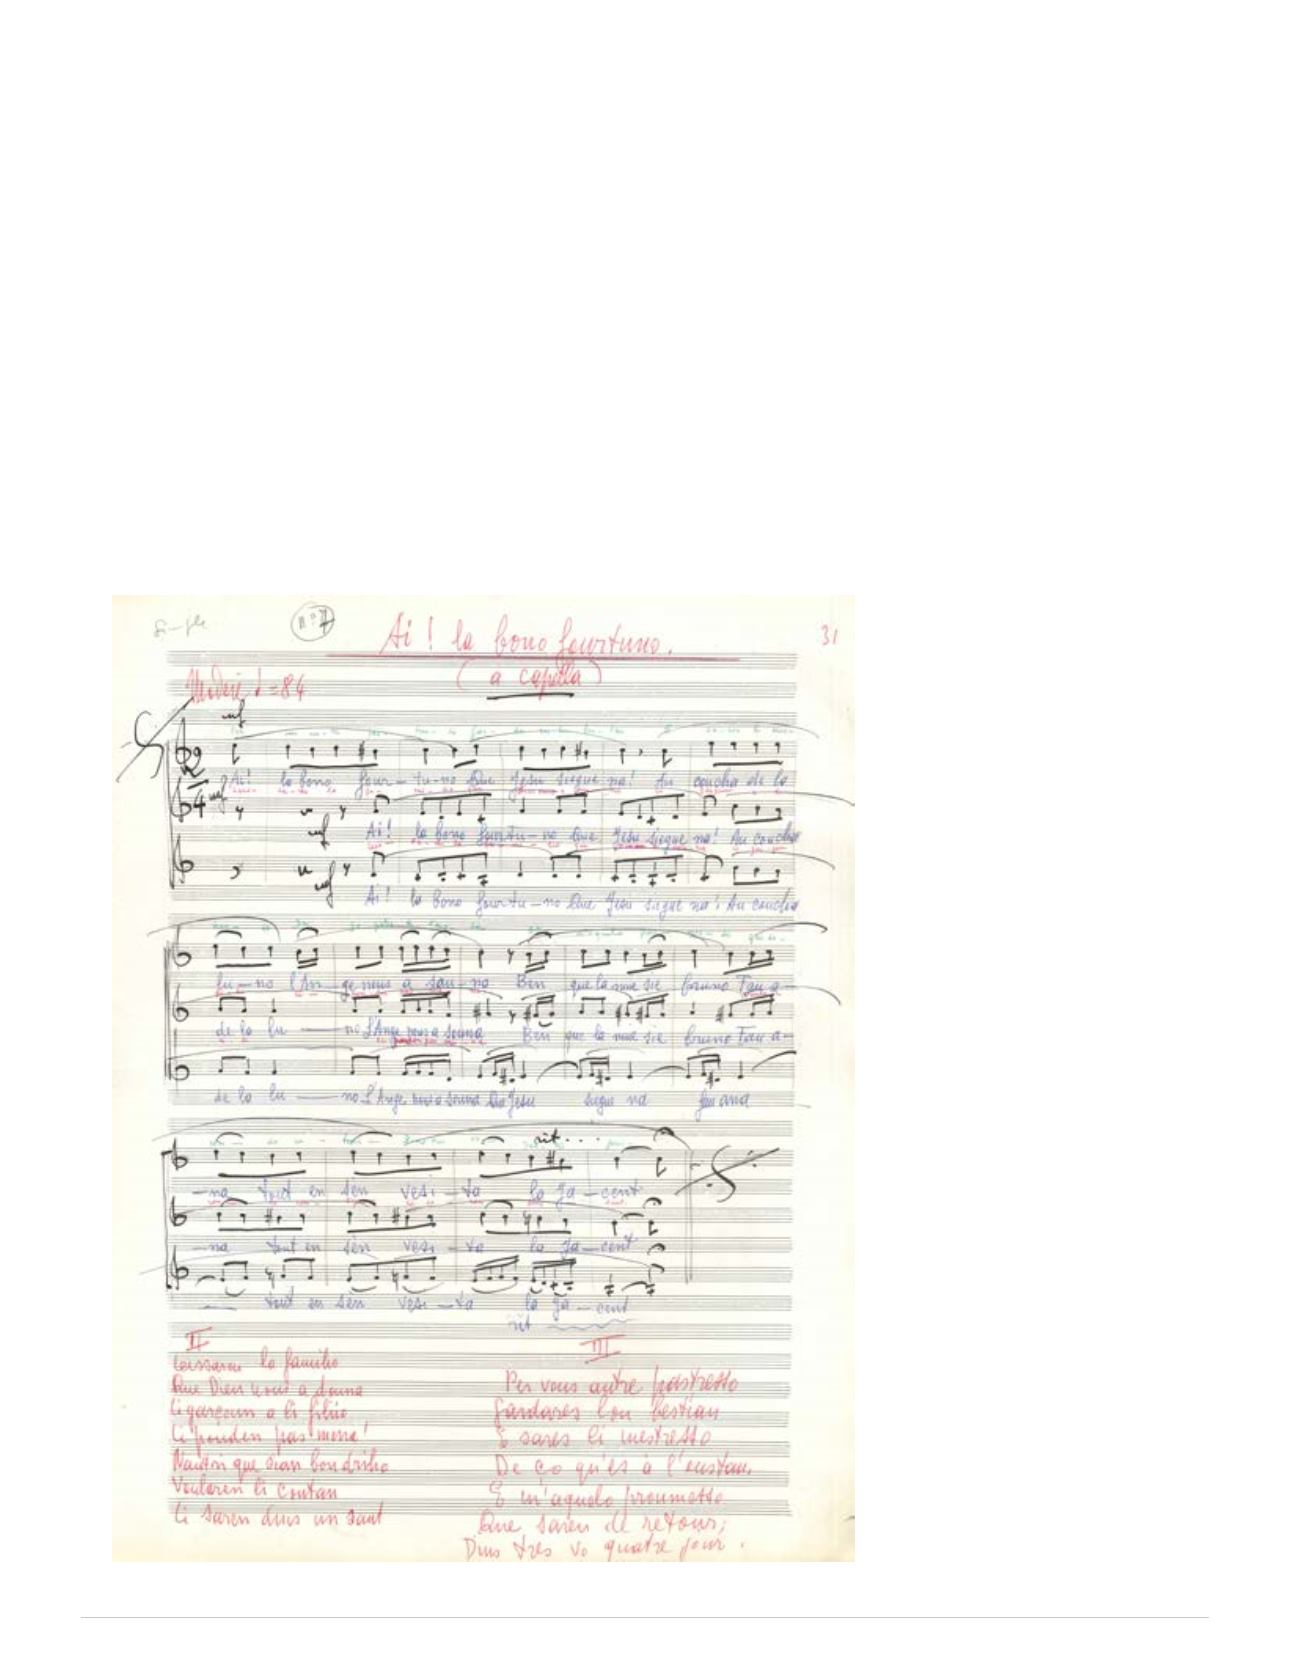 Simple
n°7
Ai ! la bono fourtuno.
31
(a capella)
Modéré ♩=84
mf
Ai! la bono four–tu–no Que Jesu siegue na! Au coucha de la
mf
Ai! la bono fourtu–no Que Jesu siegue na! Au coucha
mf
Ai! la bono fourtu–no Que Jesu siegue na! Au coucha
lu–no l'An ge nous a sou–na Ben que la niue sie bruno Fau a–
de la lu — no L'Ange nous a souna Ben que la niue sie bruno Fau a–
de la lu — no L'Ange nous a souna Que Jesu siegue na fau ana
rit...
–na tout en sèn vesi–ta la ja–cent
–na tout en sèn vesi–ta la ja–cent
tout en sèn vesi–ta la ja–cent
rit
II
Leissaren la familio
Que Dieu nous a douna
Li garçoun a li fiho
Li poudèn pas mena!
li coutau
Li saren dins un saut
III
Per vous autre pastresso
Gardares lou bestiau
E sares li mestresso
De ço qu'es à l'oustau.
E m'aquelo proumesso
Que saren de retour;
Dins tres vo quatre jour.